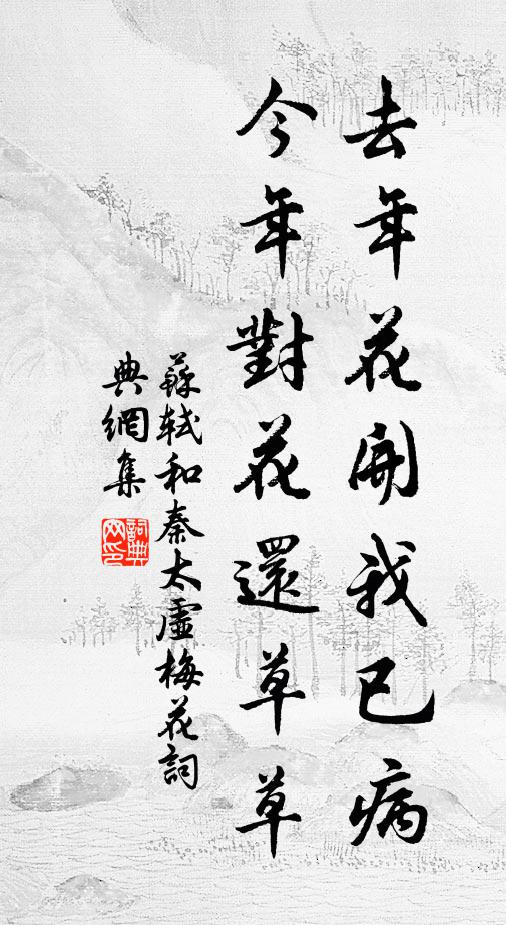 去年花開我已病
今年對花還草草
蘇軾和秦太虛梅花詞
典網集
詞典網印